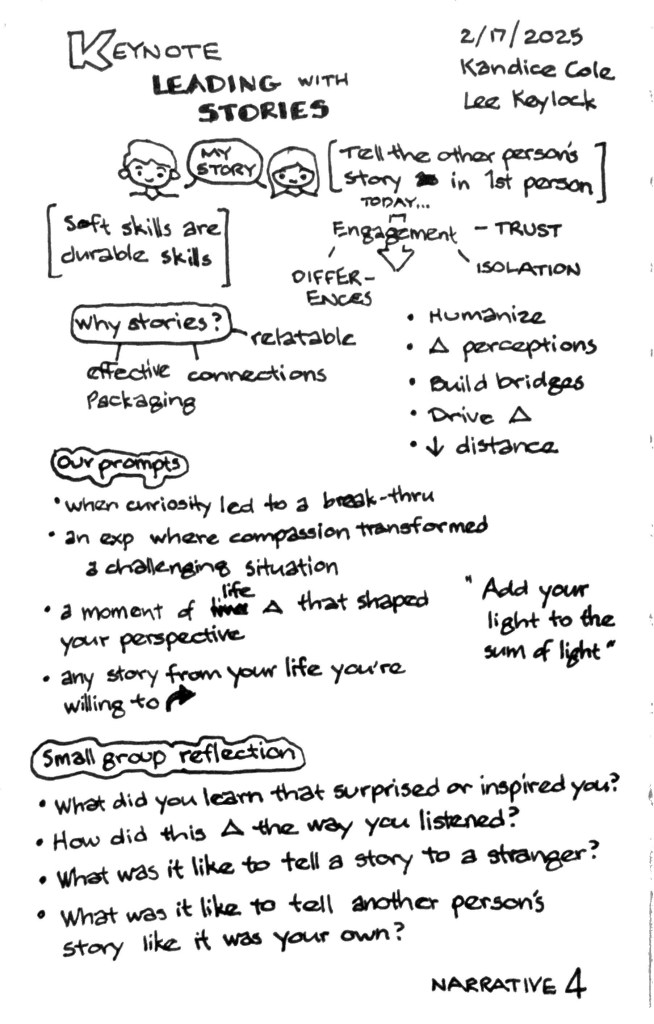 KEYNOTE
LEADING WITH
STORIES
2/17/2025
Kandice Cole
Lee Keylock
MY
STORY
[Tell the other person's
story in 1st person]
[Soft skills are
durable skills]
TODAY...
Engagement
- TRUST
DIFFER-
ENCES
ISOLATION
Why stories?
relatable
effective
Packaging
connections
• Humanize
• Δ perceptions
• Build bridges
• Drive Δ
• ↓ distance
Our prompts
• when curiosity led to a break-thru
• an exp where compassion transformed
a challenging situation
• a moment of life Δ that shaped
your perspective
• any story from your life you're
willing to ↱
"Add your
light to the
sum of light"
Small group reflection
• What did you learn that surprised or inspired you?
• How did this Δ the way you listened?
• What was it like to tell a story to a stranger?
• What was it like to tell another person's
story like it was your own?
NARRATIVE 4